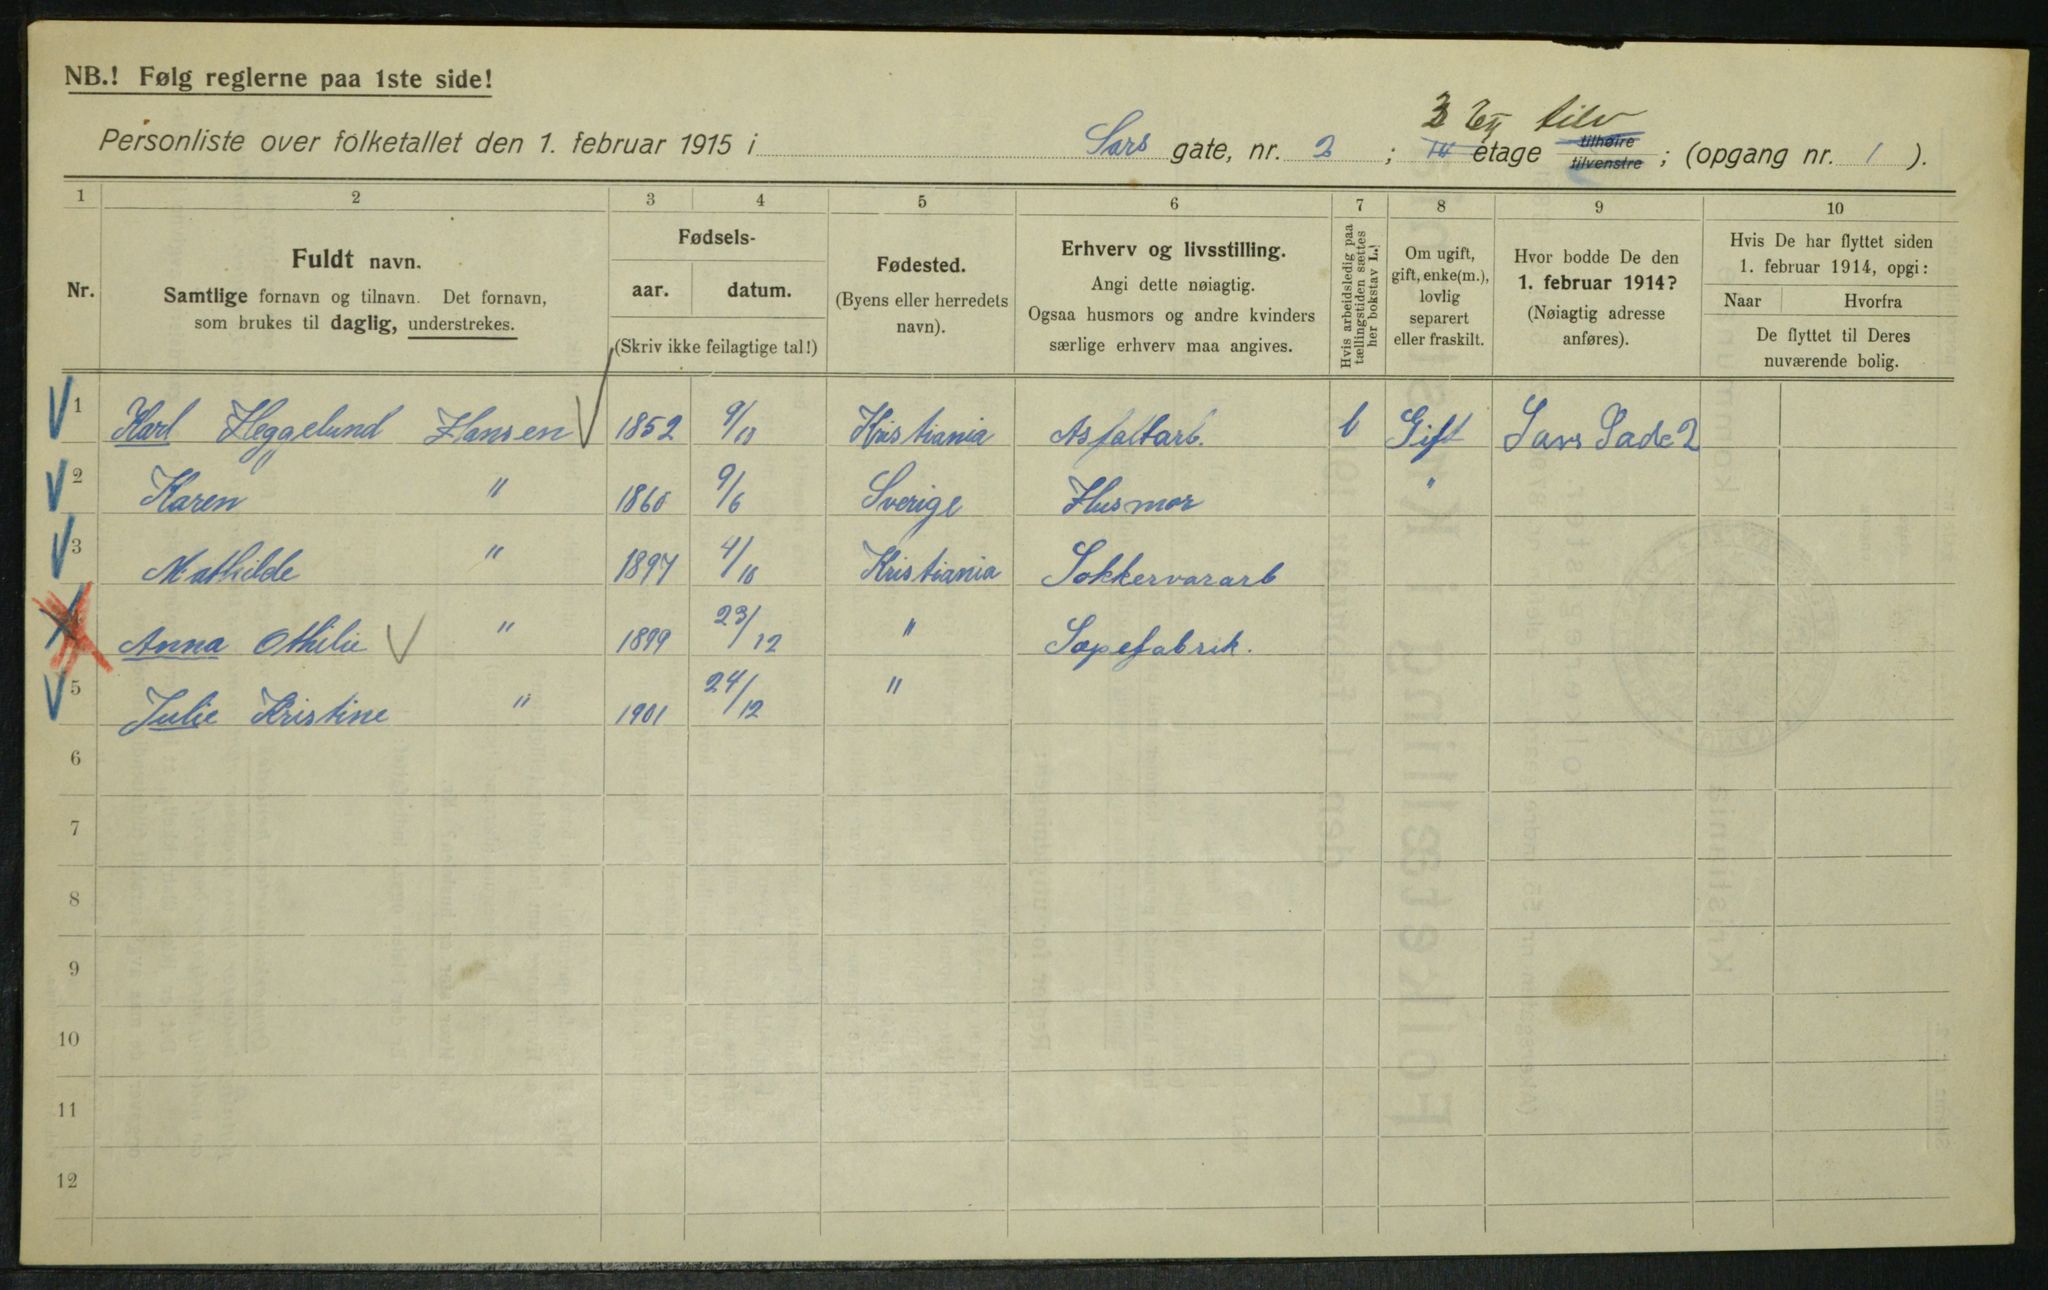 NB.! Følg reglerne paa 1ste side!
3 Etg tilv
Personliste over folketallet den 1. februar 1915 i Sars gate, nr. 2 ; IV etage tilhøire tilvenstre ; (opgang nr. 1 ).
1 2 3 4 5 6 7 8 9 10
Nr.
Fuldt navn.
Samtlige fornavn og tilnavn. Det fornavn,
som brukes til daglig, understrekes.
Fødsels-
aar. datum.
(Skriv ikke feilagtige tal!)
Fødested.
(Byens eller herredets
navn).
Erhverv og livsstilling.
Angi dette nøiagtig.
Ogsaa husmors og andre kvinders
særlige erhverv maa angives.
Hvis arbeidsledig paa
tællingstiden sættes
her bokstav L.!
Om ugift,
gift, enke(m.),
lovlig
separert
eller fraskilt.
Hvor bodde De den
1. februar 1914?
(Nøiagtig adresse
anføres).
Hvis De har flyttet siden
1. februar 1914, opgi:
Naar Hvorfra
De flyttet til Deres
nuværende bolig.
1 Karl Heggelund Hansen 1852 9/10 Kristiania Asfaltarb. l Gift Sars Gade 2
2 Karen " 1860 9/6 Sverige Husmor "
3 Mathilde " 1897 4/10 Kristiania Sokkervararb
Anna Othilie " 1899 23/12 " Sæpefabrik.
5 Julie Kristine " 1901 24/12 "
6
7
8
9
10
11
12